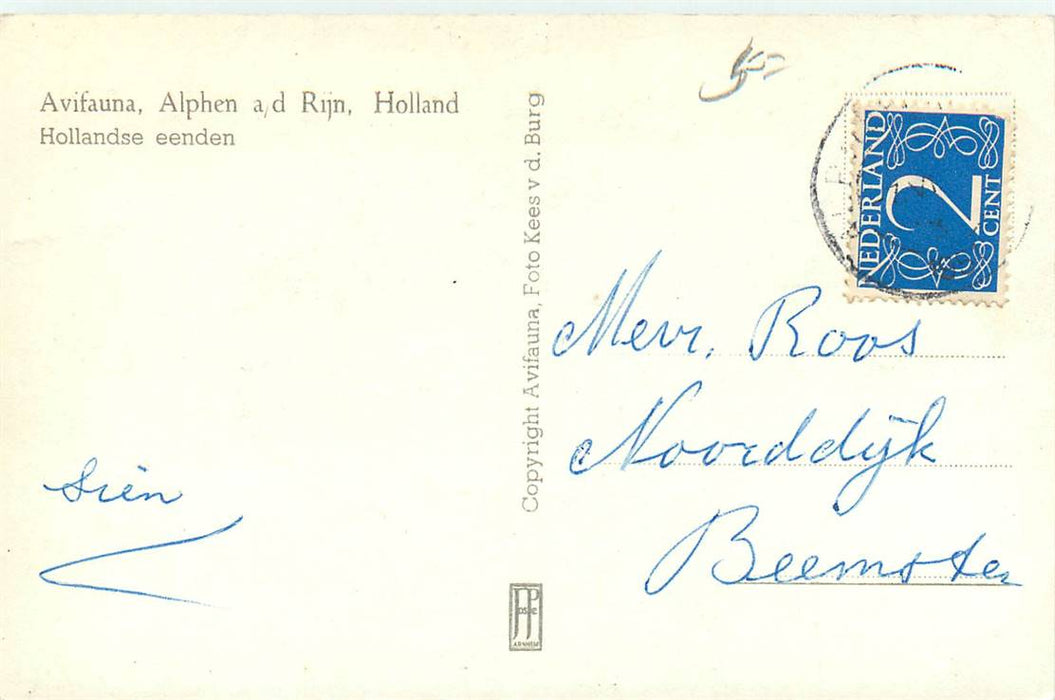 Avifauna, Alphen a/d Rijn, Holland
Hollandse eenden
Sien
Copyright Avifauna, Foto Kees v d. Burg
NEDERLAND
2
CENT
Mevr. Roos
Noorddijk
Beemster
JP
ARNHEM